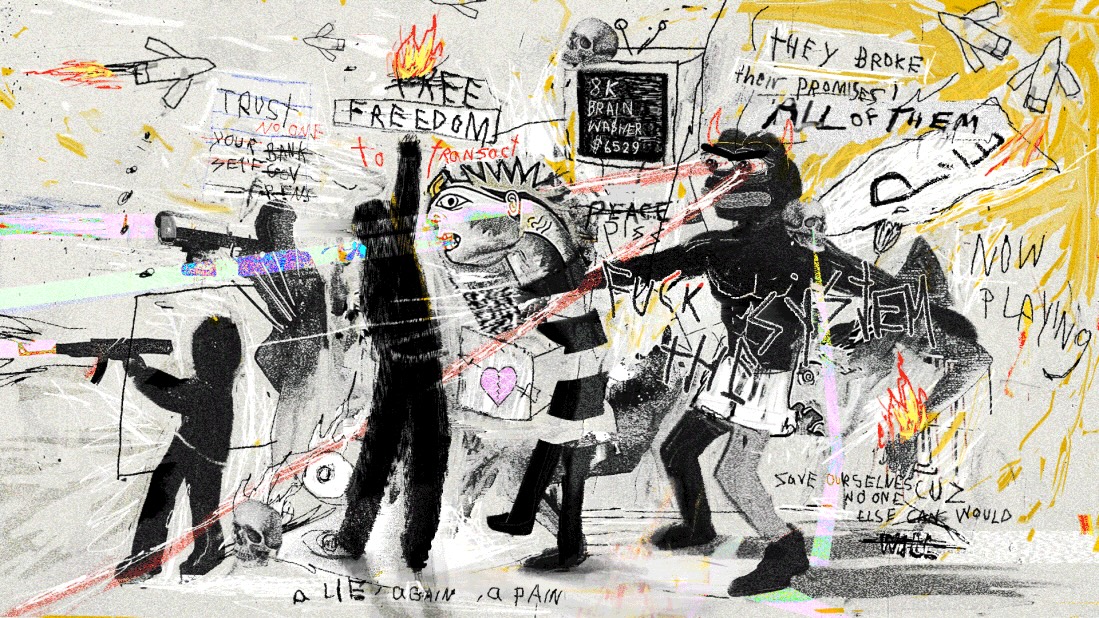 TRUST
NO ONE
YOUR BANK
SELF GOV
FRENS
FREE
FREEDOM
to transact
8K
BRAIN
WASHER
$6529
THEY BROKE
their PROMISES!
ALL OF THEM
PEACE
PISS
FUSK
THE SYSTEM
NOW
PLAYING
SAVE OURSELVES CUZ
NO ONE
ELSE CAN WOULD
WILL
a LIE, AGAIN, a PAIN